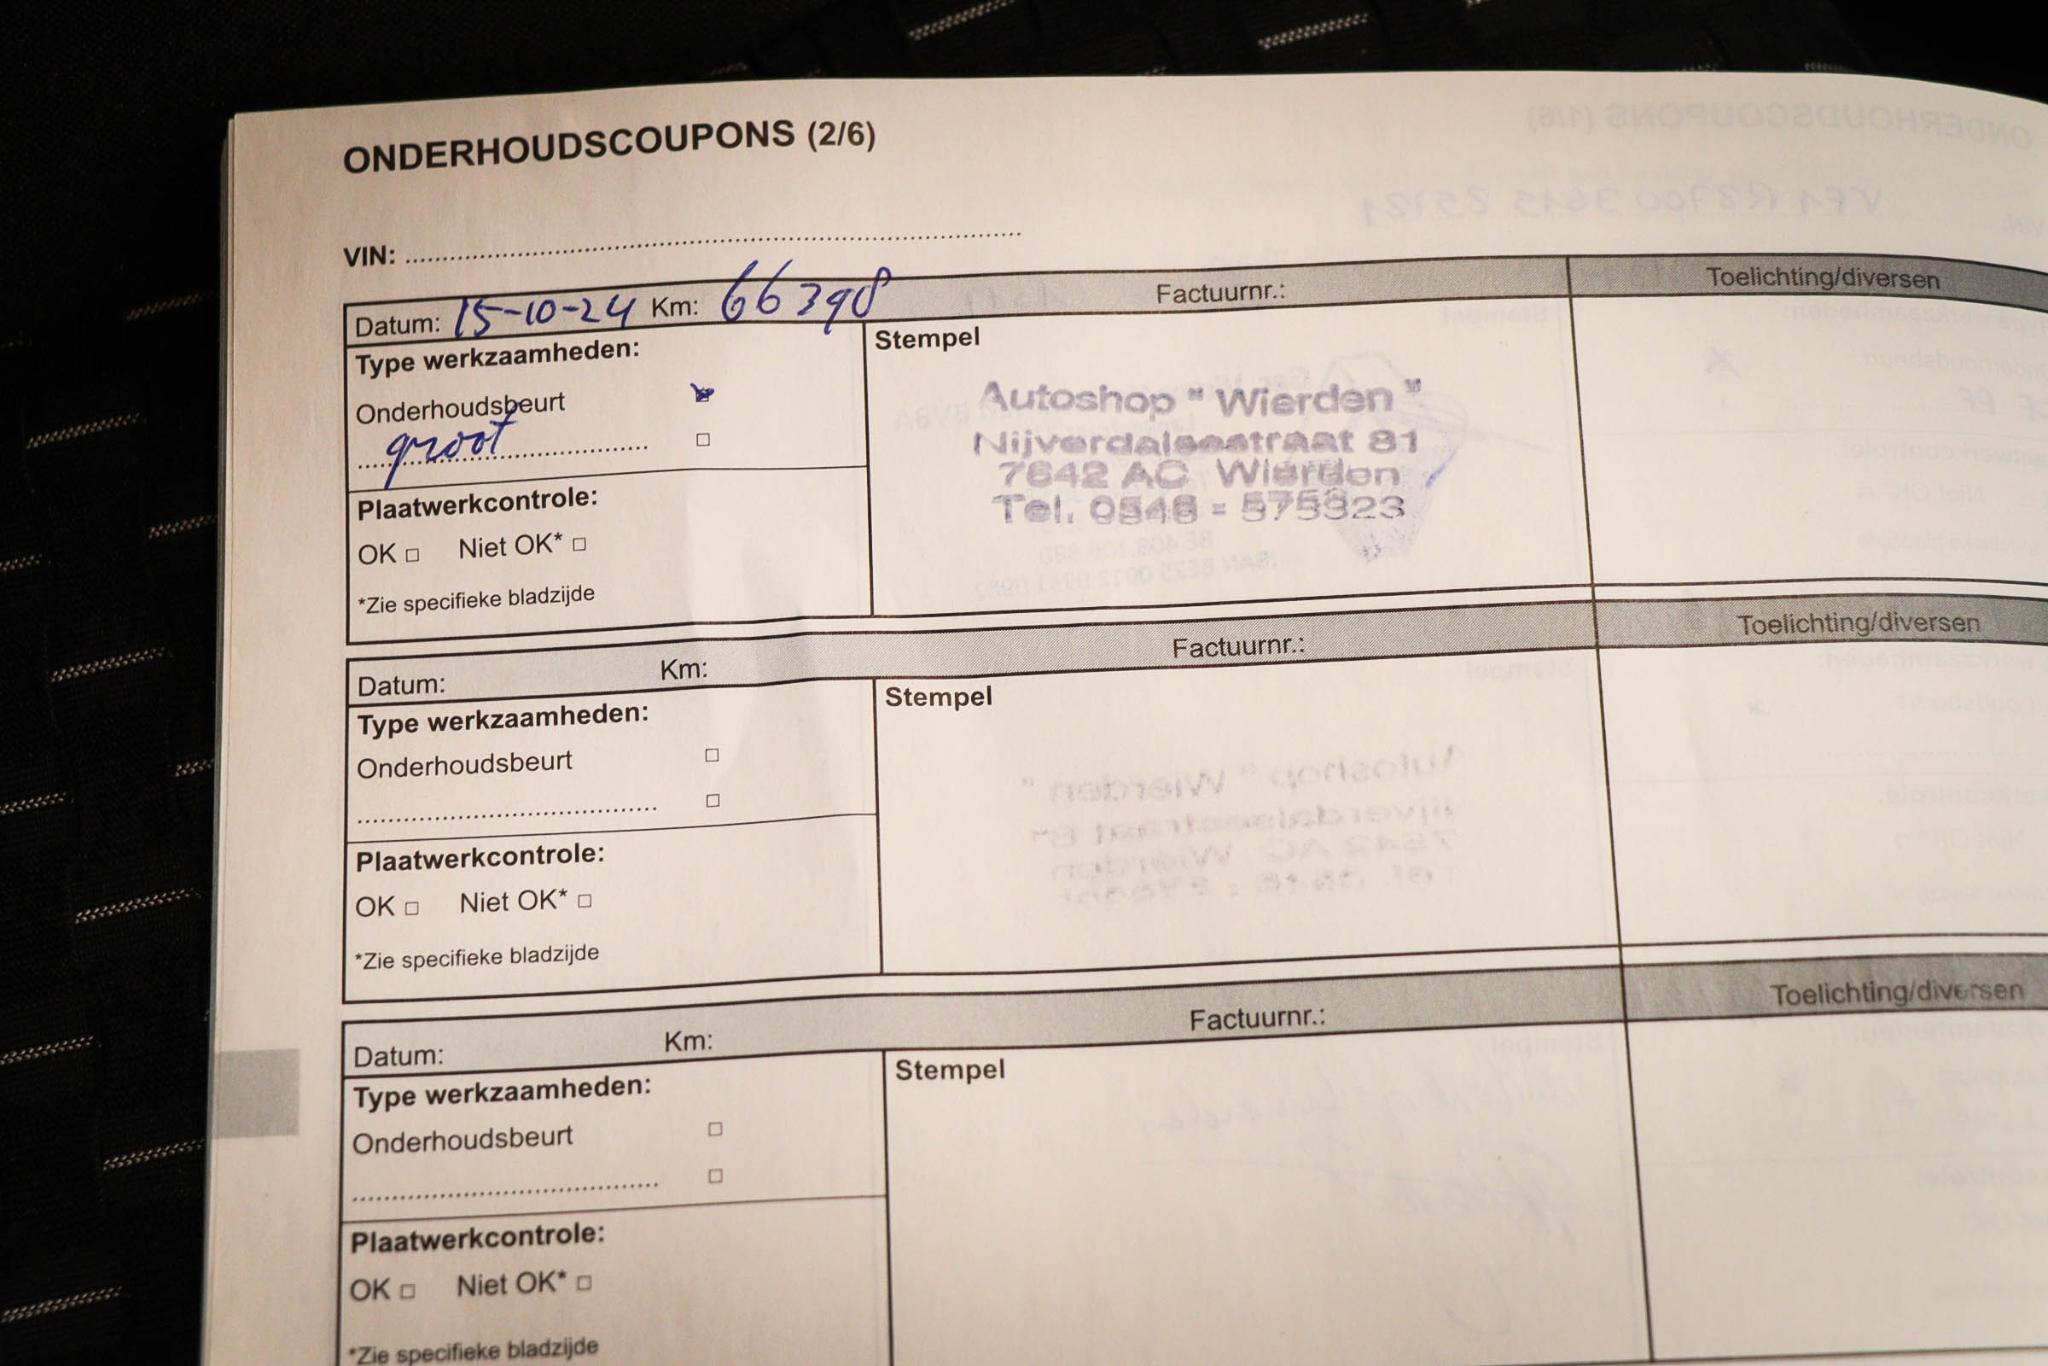 ONDERHOUDSCOUPONS (2/6)
VIN:
Datum: 15-10-24 Km: 66398 Factuurnr.: Toelichting/diversen
Type werkzaamheden:
Stempel
Onderhoudsbeurt
groot
Autoshop " Wierden "
Nijverdalsestraat 81
7642 AC Wierden
Tel. 0546 - 575323
Plaatwerkcontrole:
OK □ Niet OK* □
*Zie specifieke bladzijde
Datum: Km: Factuurnr.: Toelichting/diversen
Type werkzaamheden:
Stempel
Onderhoudsbeurt □
□
Plaatwerkcontrole:
OK □ Niet OK* □
*Zie specifieke bladzijde
Datum: Km: Factuurnr.: Toelichting/diversen
Type werkzaamheden:
Stempel
Onderhoudsbeurt □
□
Plaatwerkcontrole:
OK □ Niet OK* □
*Zie specifieke bladzijde